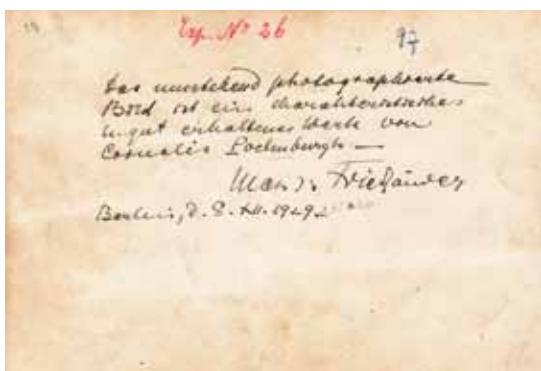 Exp. Nº 26
97
Das umstehend photographierte
Bild ist ein charakteristisches
u. gut erhaltenes Werk von
Cornelis
Max J. Friedländer
Berlin, d. 8. XII. 1929.